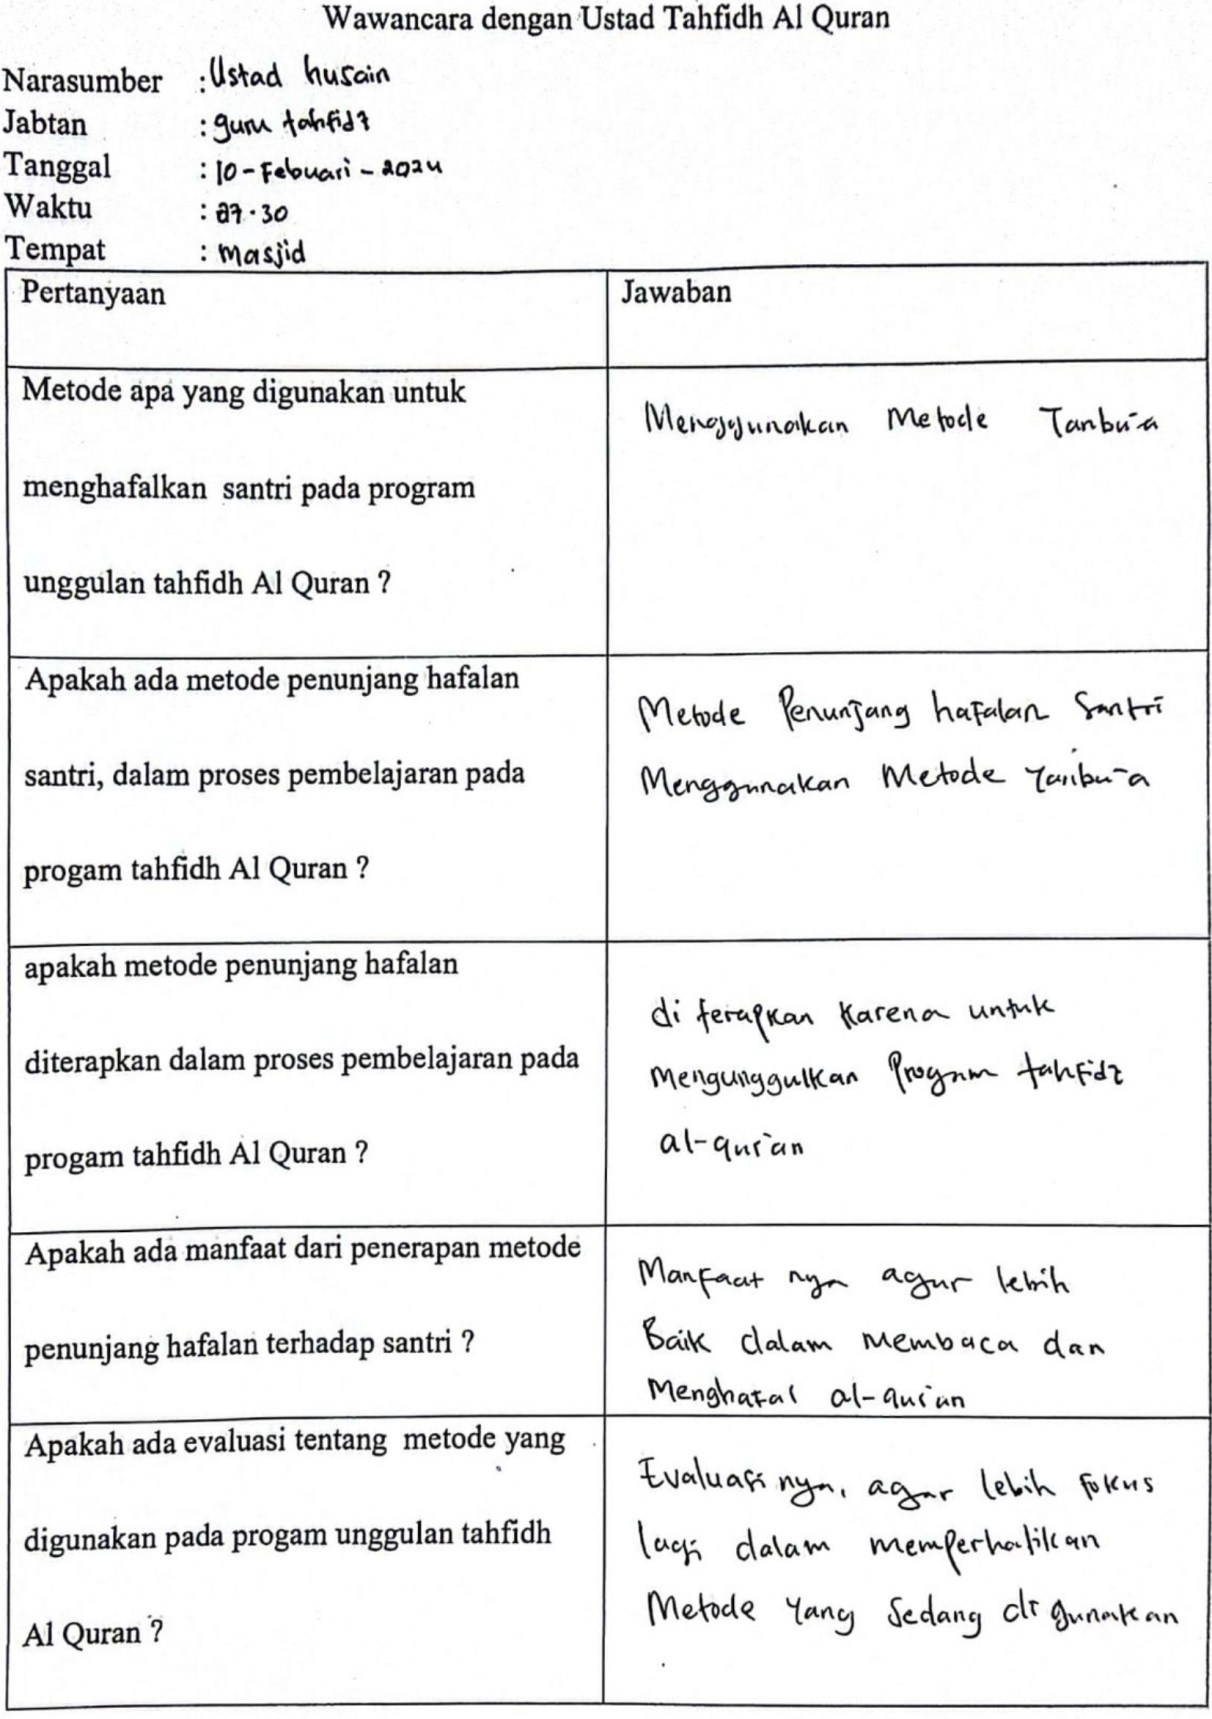 Wawancara dengan Ustad Tahfidh Al Quran
Narasumber : Ustad husain
Jabtan : guru tahfidz
Tanggal : 10 - Febuari - 2024
Waktu : 07.30
Tempat : masjid
Pertanyaan
Jawaban
Metode apa yang digunakan untuk
menghafalkan santri pada program
unggulan tahfidh Al Quran ?
Menggunakan Metode Tanbu'a
Apakah ada metode penunjang hafalan
santri, dalam proses pembelajaran pada
progam tahfidh Al Quran ?
Metode Penunjang hafalan Santri
Menggunakan Metode Yanbu'a
apakah metode penunjang hafalan
diterapkan dalam proses pembelajaran pada
progam tahfidh Al Quran ?
di terapkan Karena untuk
mengunggulkan Program tahfidz
al-qur'an
Apakah ada manfaat dari penerapan metode
penunjang hafalan terhadap santri ?
Manfaat nya agar lebih
Baik dalam membaca dan
Menghafal al-qur'an
Apakah ada evaluasi tentang metode yang
digunakan pada progam unggulan tahfidh
Al Quran ?
Evaluasi nya, agar lebih fokus
lagi dalam memperhatikan
Metode Yang Sedang di gunakan